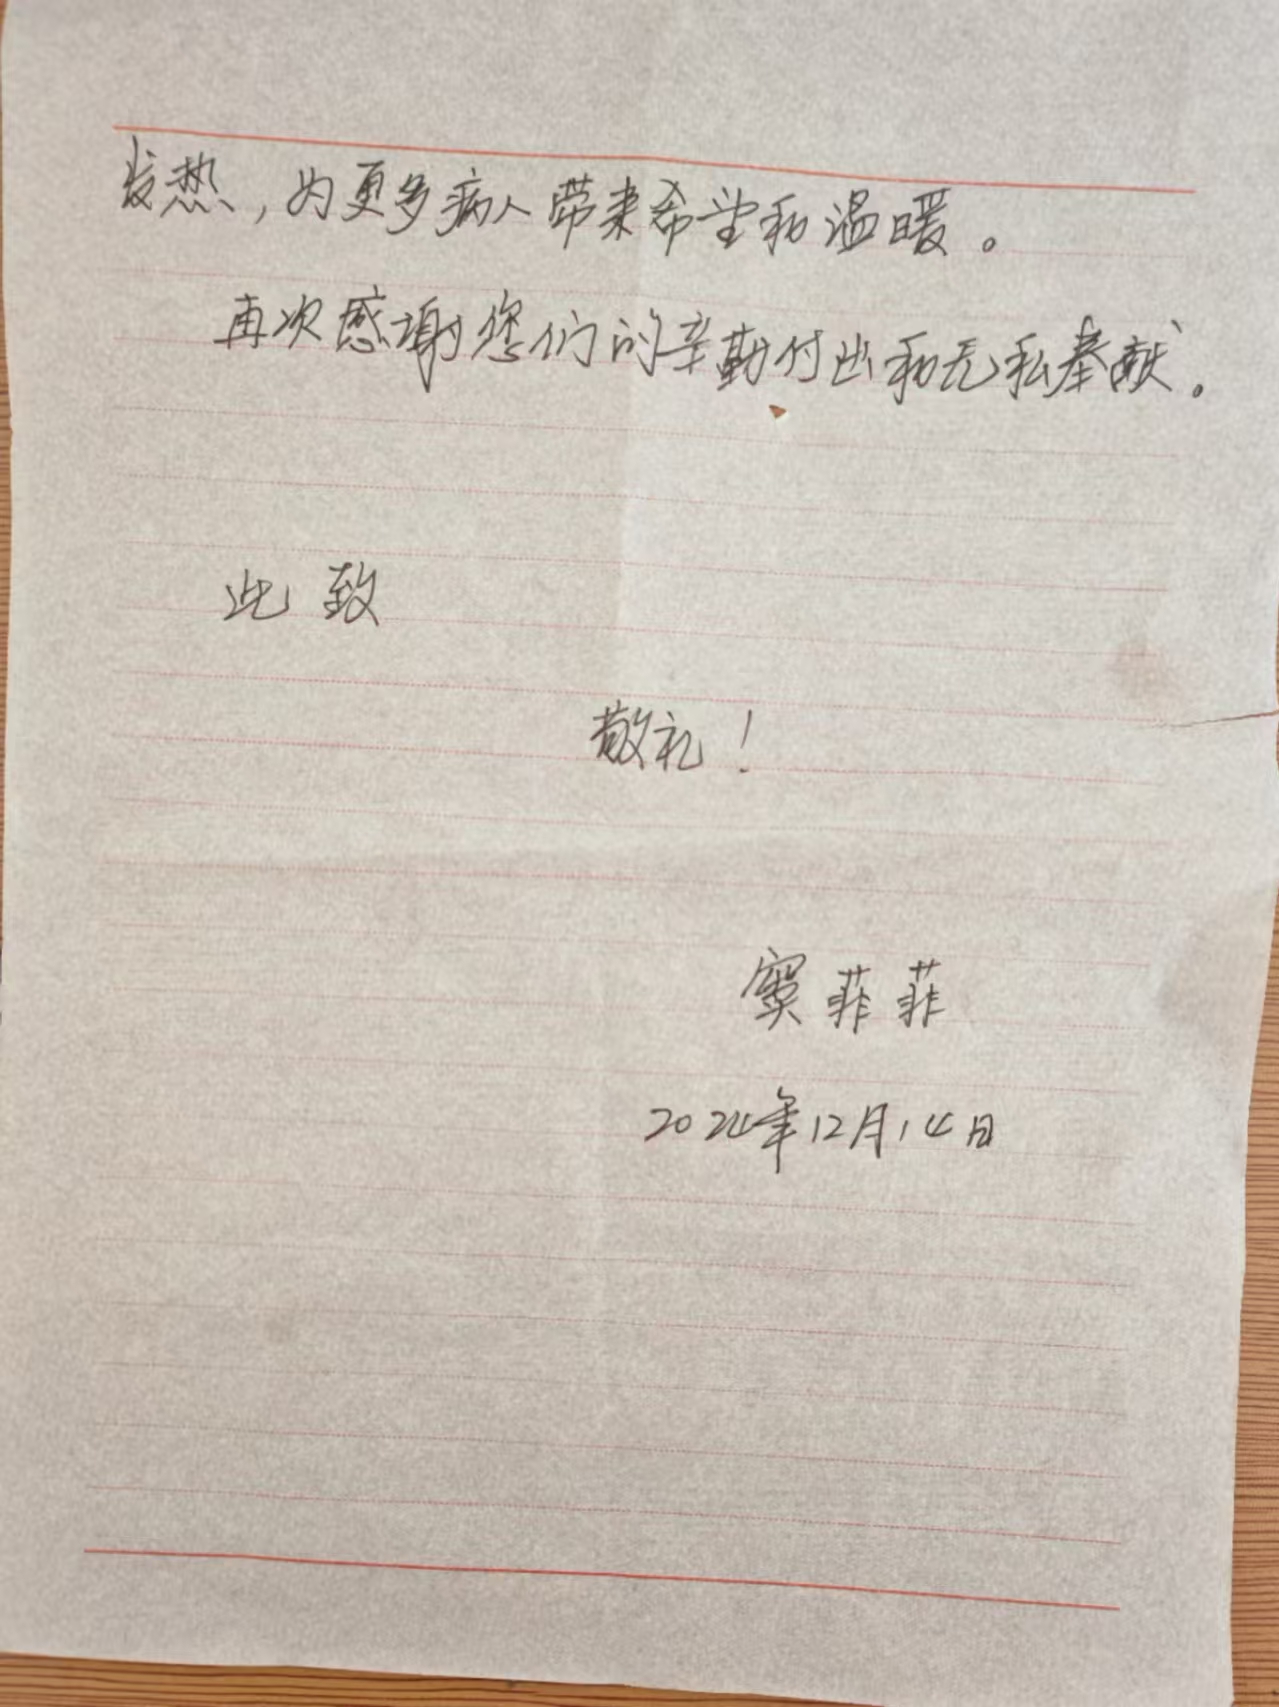 发热，为更多病人带来希望和温暖。
再次感谢您们的辛勤付出和无私奉献。
此致
敬礼！
窦菲菲
2024年12月14日